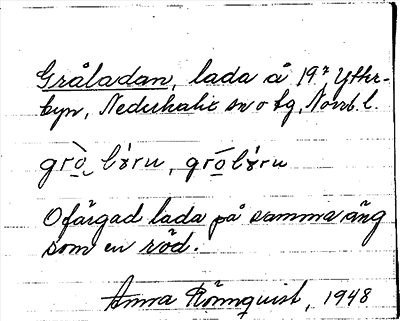 Gråladan, lada å 19², Ytter-
byn, Nederkalix sn o tg, Norrb. l.
grò̱ lɞ́ru, gró̱lɞ̀ru
Ofärgad lada på samma äng
som en röd.
Anna Rönnquist, 1948